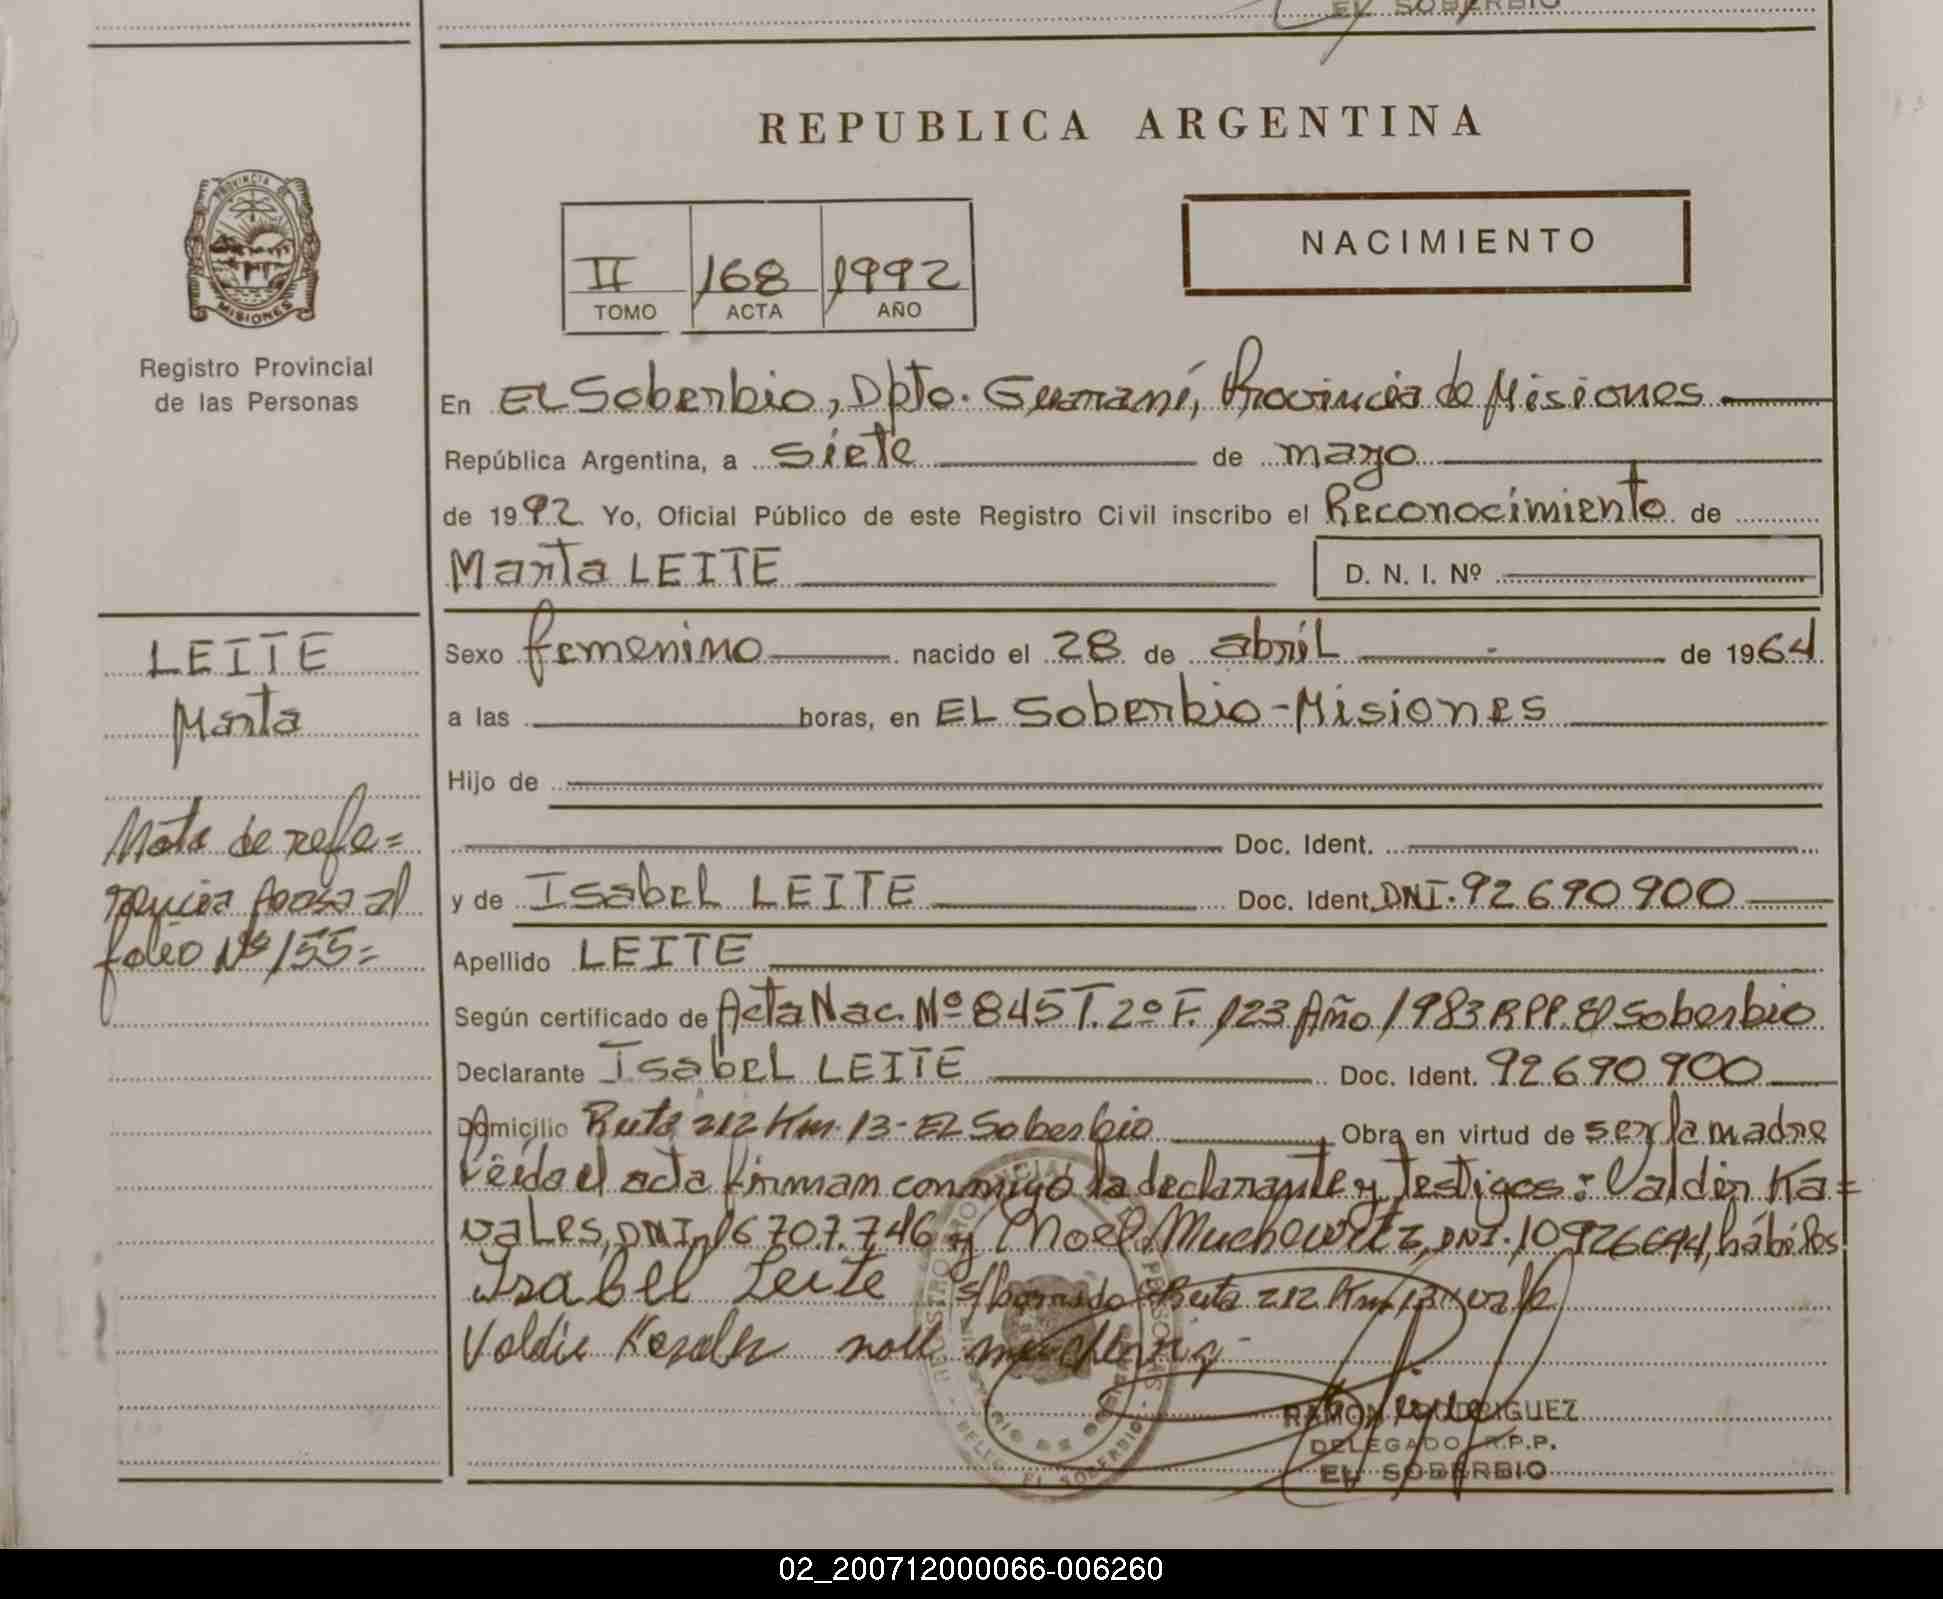 EL SOBERBIO
REPUBLICA ARGENTINA
PROVINCIA DE
MISIONES
Registro Provincial
de las Personas
II 168 1992
TOMO ACTA AÑO
NACIMIENTO
En EL Soberbio, Dpto. Guaraní, Provincia de Misiones
República Argentina, a siete de mayo
de 1992 Yo, Oficial Público de este Registro Civil inscribo el Reconocimiento de
Marta LEITE D. N. I. Nº
LEITE
Marta
Nota de refe=
rencia pasa al
folio Nº 155=
Sexo femenino nacido el 28 de abril de 1964
a las horas, en EL Soberbio-Misiones
Hijo de
Doc. Ident.
y de Isabel LEITE Doc. Ident. DNI. 92.690.900
Apellido LEITE
Según certificado de Acta Nac. Nº 845 T. 2º F. 123 Año 1983 R.P.P. El Soberbio
Declarante Isabel LEITE Doc. Ident. 92.690.900
Domicilio Ruta 212 Km. 13-El Soberbio Obra en virtud de ser la madre
Leída el acta firman conmigo la declarante y testigos: Valdir Ka=
vales, DNI. 16.707.746 y Noel Muchewitz, DNI. 10926694, hábiles
Isabel Leite s/borrado Ruta 212 Km. 13 vale
RAMON RODRIGUEZ
DELEGADO R.P.P.
EL SOBERBIO
02_200712000066-006260